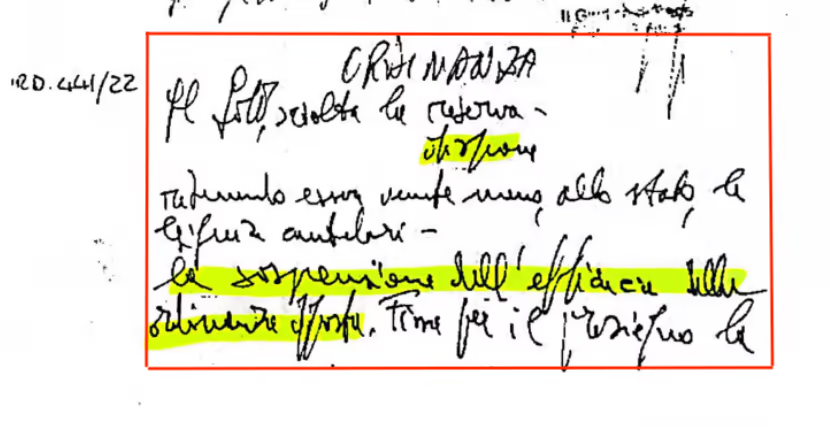 ORDINANZA
ORD. 441/22
Il GOP, sciolta la riserva -
dispone
ritenendo esser venute meno, allo stato, le
esigenze cautelari -
la sospensione dell'efficacia della
ordinanza opposta. Ferma per il prosieguo la